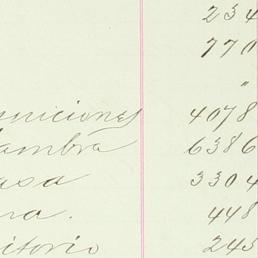 234
770
"
uniciones 4078
lambra 6386
asa 3304
na. 448
itorio 245